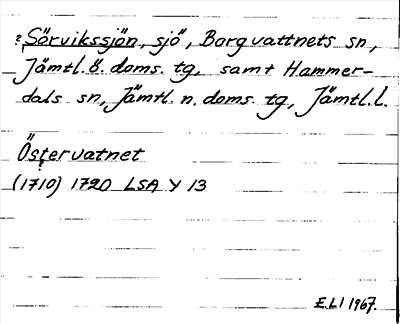 ?, Sörvikssjön, sjö, Borgvattnets sn,
Jämtl. ö. doms. tg, samt Hammer-
dals sn, Jämtl. n. doms. tg, Jämtl.l.
Östervatnet
(1710) 1720 LSA Y 13
E.L! 1967.